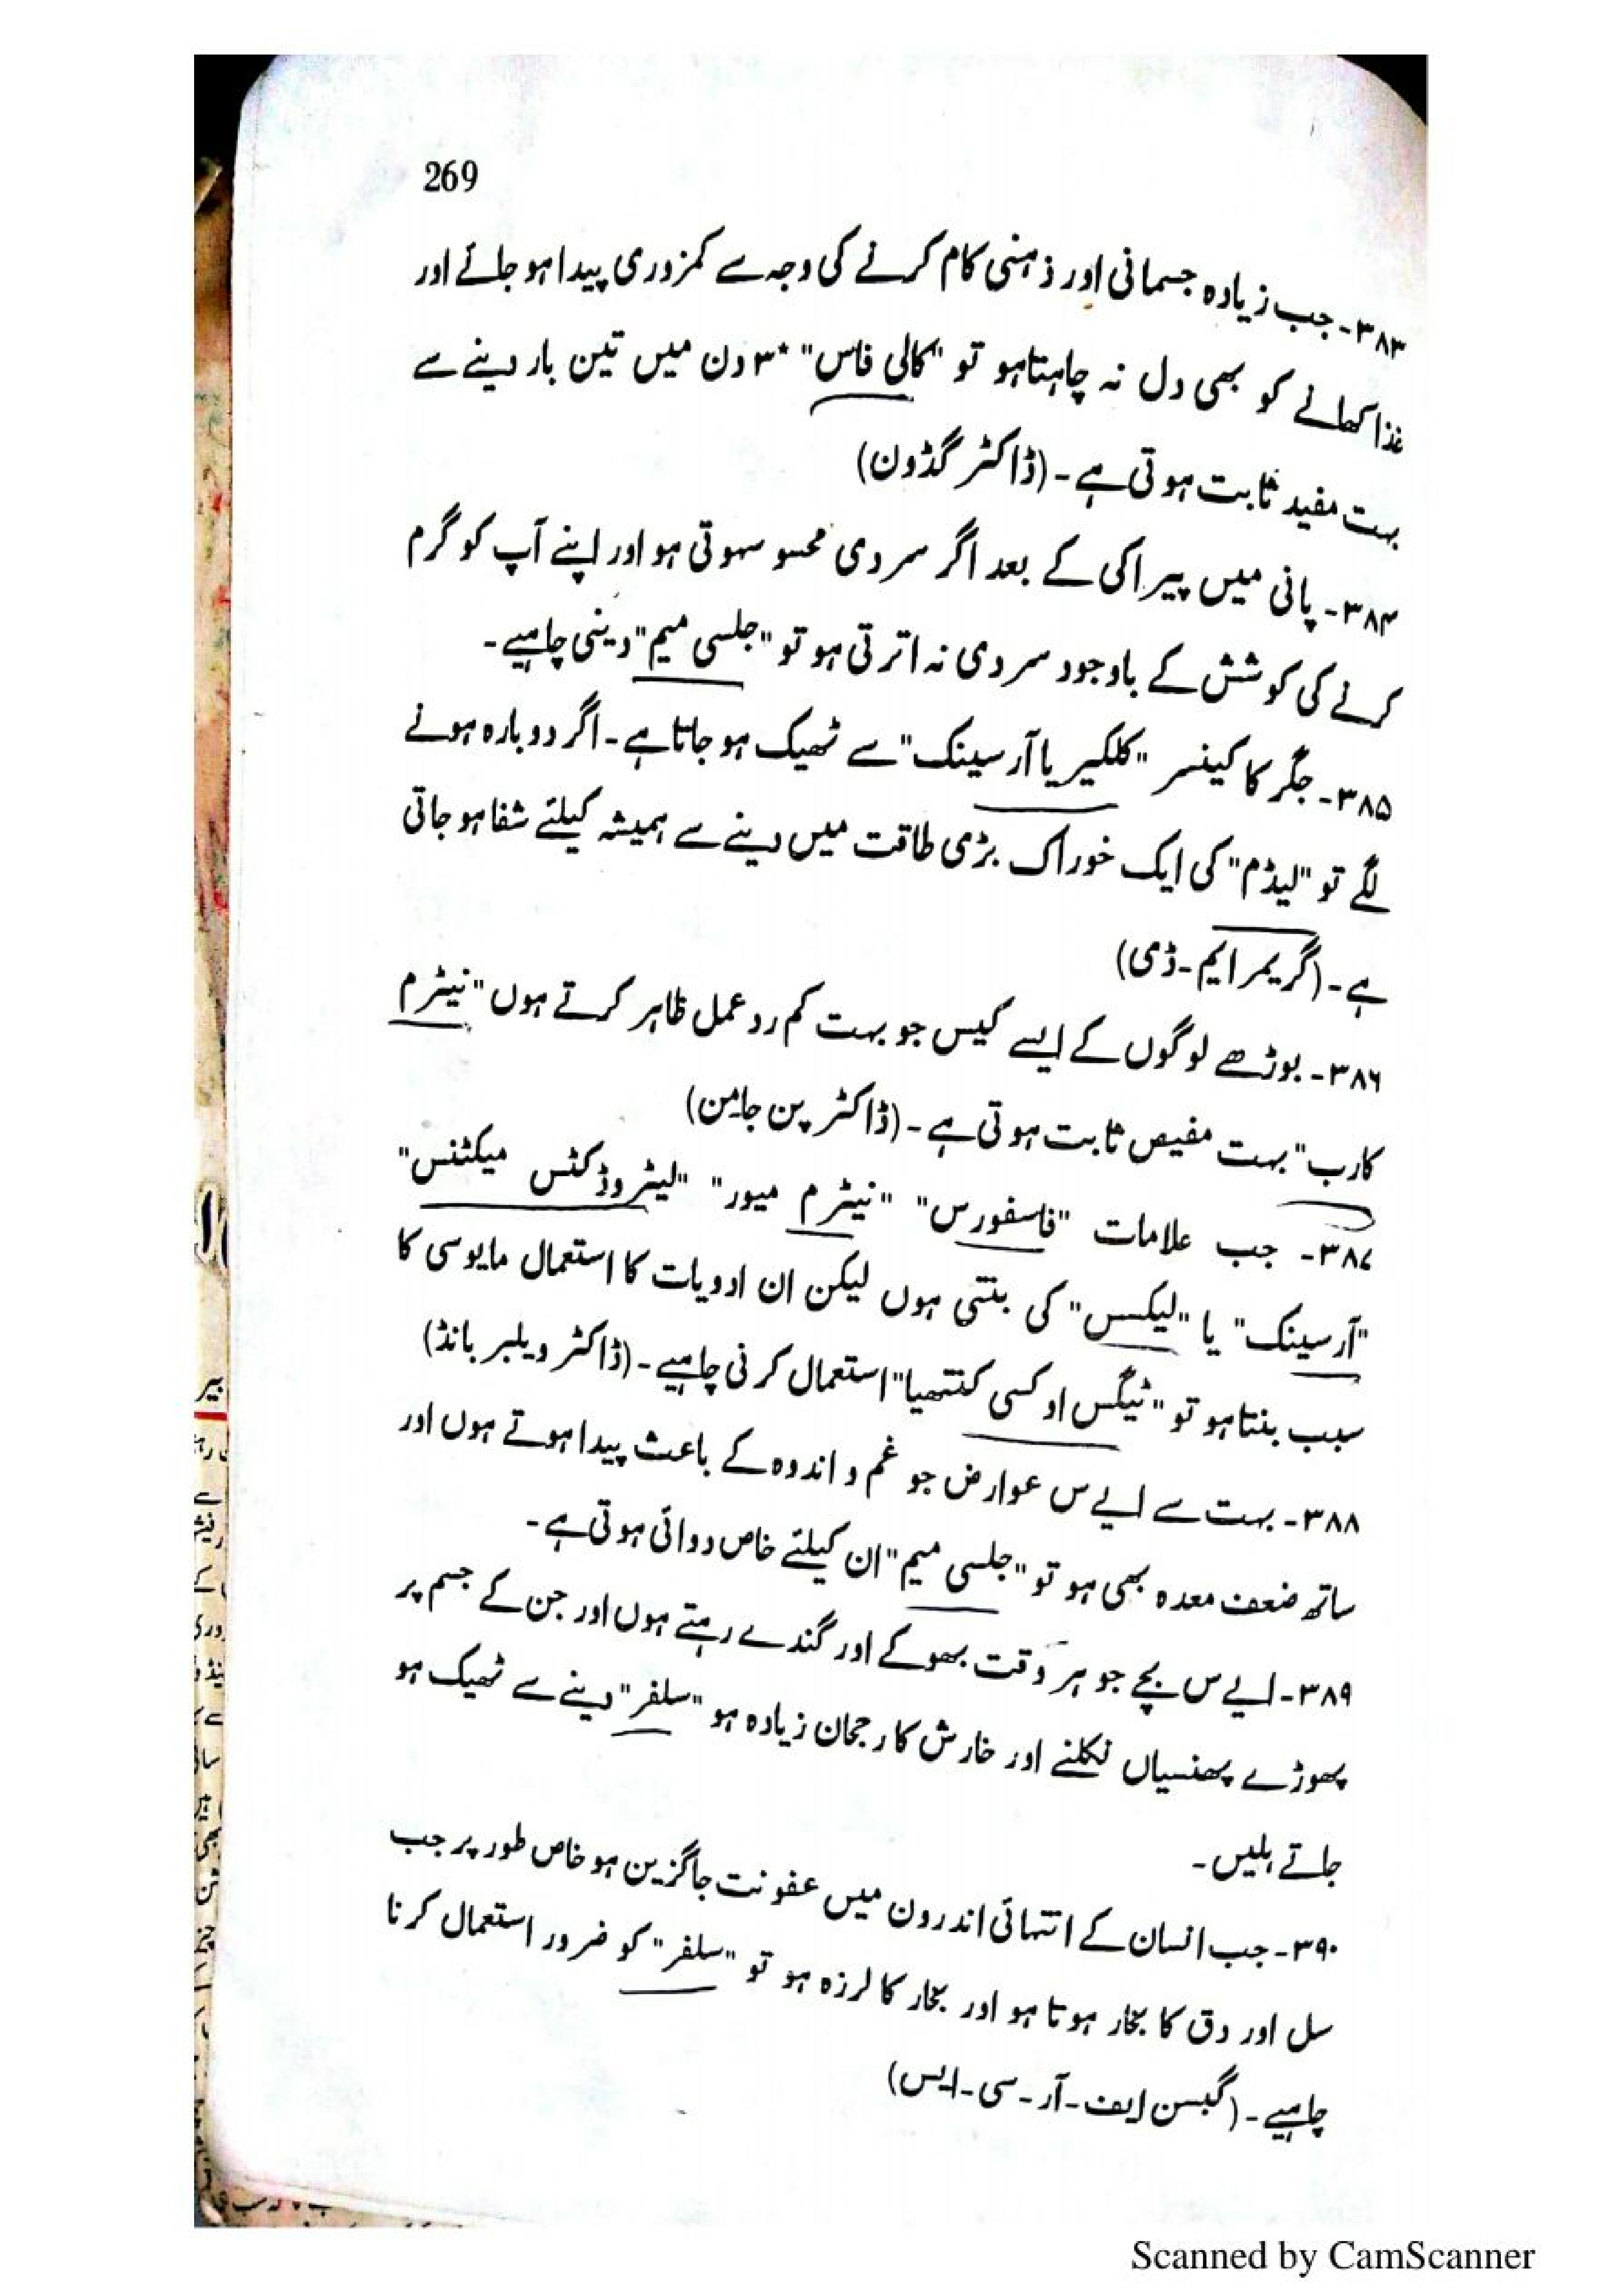 269
۳۸۳۔ جب زیادہ جسمانی اور ذہنی کام کرنے کی وجہ سے کمزوری پیدا ہو جائے اور
غذا کھانے کو بھی دل نہ چاہتا ہو تو "کالی فاس" *۳ دن میں تین بار دینے سے
بہت مفید ثابت ہوتی ہے۔ (ڈاکٹر گڈون)
۳۸۴۔ پانی میں پیراکی کے بعد اگر سردی محسو سہوتی ہو اور اپنے آپ کو گرم
کرنے کی کوشش کے باوجود سردی نہ اترتی ہو تو "جلسی میم" دینی چاہیے۔
۳۸۵۔ جگر کا کینسر "کلکیر یا آرسینک" سے ٹھیک ہو جاتا ہے۔ اگر دوبارہ ہونے
لگے تو "لیڈم" کی ایک خوراک بڑی طاقت میں دینے سے ہمیشہ کیلئے شفا ہو جاتی
ہے۔ (گریمر ایم۔ڈی)
۳۸۶۔ بوڑھے لوگوں کے ایسے کیس جو بہت کم رد عمل ظاہر کرتے ہوں "نیٹرم
کارب" بہت مفیص ثابت ہوتی ہے۔ (ڈاکٹر پن جامن)
۳۸۷۔ جب علامات "فاسفورس" "نیٹرم میور" "لیٹروڈکٹس میکٹنس"
"آرسینک" یا "لیکسس" کی بنتی ہوں لیکن ان ادویات کا استعمال مایوسی کا
سبب بنتا ہو تو "ٹیگس اوکسی کنتھیا" استعمال کرنی چاہیے۔ (ڈاکٹر ویلبر بانڈ)
۳۸۸۔ بہت سے ایےس عوارض جو غم و اندوہ کے باعث پیدا ہوتے ہوں اور
ساتھ ضعف معدہ بھی ہو تو "جلسی میم" ان کیلئے خاص دوائی ہوتی ہے۔
۳۸۹۔ ایےس بچے جو ہر وقت بھوکے اور گندے رہتے ہوں اور جن کے جسم پر
پھوڑے پھنسیاں نکلنے اور خارش کا رجحان زیادہ ہو "سلفر" دینے سے ٹھیک ہو
جاتے ہلیں۔
۳۹۰۔ جب انسان کے انتہائی اندرون میں عفونت جاگزین ہو خاص طور پر جب
سل اور دق کا بخار ہوتا ہو اور بخار کا لرزہ ہو تو "سلفر" کو ضرور استعمال کرنا
چاہیے۔ (گبسن ایف۔آر۔سی۔ایس)
Scanned by CamScanner